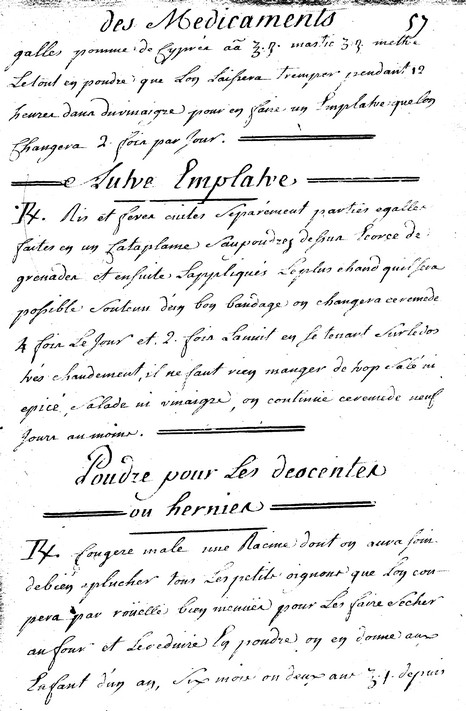 des Medicaments 57
galles pomme de Cyprés aã ʒ.ʒ. mastic ʒ.ʒ. mettre
Le tout en poudre que Lon Laissera tremper pendant 12
heures dans du vinaigre pour en faire un Emplatre que lon
Changera 2. fois par Jour.
Autre Emplatre
℞. Ris et feves cuites Separement parties egalles
faites en un Cataplame Saupoudrez dessus Ecorce de
grenades et ensuite Lappliqués Le plus chaud quil sera
possible Soutenu d'un bon bandage on changera ce remede
4 fois Le Jour et 2. fois La nuit en se tenant Sur le dos
trés chaudement, il ne faut rien manger de trop Salé ni
epicé, Salade ni vinaigre, on continue ce remede neuf
Jours au moins.
Poudre pour Les descentes
ou hernies
℞. fougere male une Racine dont on aura soin
de bien eplucher tous Les petits oignons que Lon cou-
pera par roüelle bien menuës pour Les faire Secher
au four et Le reduire En poudre on en donne aux
Enfant d'un an, Six mois ou deux ans ʒ.1. depuis